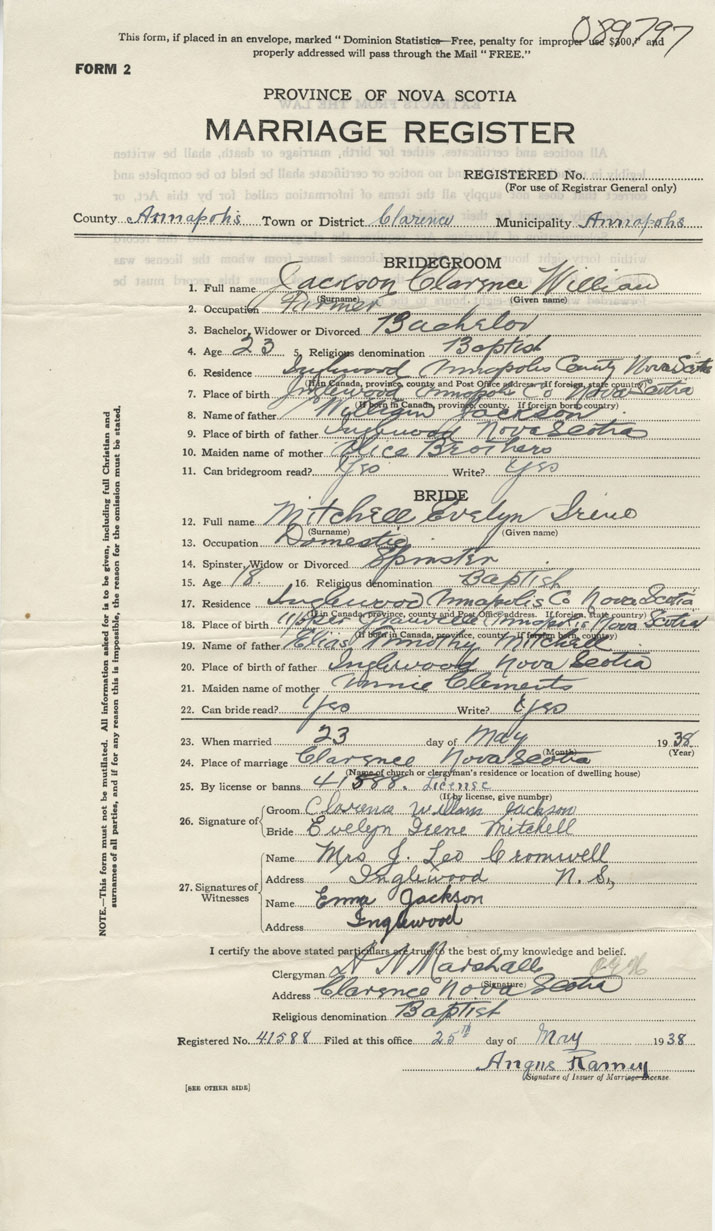 089797
This form, if placed in an envelope, marked "Dominion Statistics—Free, penalty for improper use $300," and
properly addressed will pass through the Mail "FREE."
FORM 2
PROVINCE OF NOVA SCOTIA
MARRIAGE REGISTER
REGISTERED No.
(For use of Registrar General only)
County Annapolis Town or District Clarence Municipality Annapolis
BRIDEGROOM
1. Full name Jackson Clarence William
(Surname) (Given name)
2. Occupation Farmer
3. Bachelor, Widower or Divorced Bachelor
4. Age 23 5. Religious denomination Baptist
6. Residence Inglewood Annapolis County Nova Scotia
(If in Canada, province, county and Post Office address. If foreign, state country)
7. Place of birth Inglewood Annapolis Co Nova Scotia
(If born in Canada, province, county. If foreign born, country)
8. Name of father William Jackson
9. Place of birth of father Inglewood Nova Scotia
10. Maiden name of mother Alice Brothers
11. Can bridegroom read? Yes Write? Yes
BRIDE
12. Full name Mitchell Evelyn Irene
(Surname) (Given name)
13. Occupation Domestic
14. Spinster, Widow or Divorced Spinster
15. Age 18 16. Religious denomination Baptist
17. Residence Inglewood Annapolis Co Nova Scotia
(If in Canada, province, county and Post Office address. If foreign, state country)
18. Place of birth Upper Annapolis Nova Scotia
(If born in Canada, province, county. If foreign born, country)
19. Name of father Elias Timothy Mitchell
20. Place of birth of father Inglewood Nova Scotia
21. Maiden name of mother Clements
22. Can bride read? Yes Write? Yes
23. When married 23 day of May 1938
(Month) (Year)
24. Place of marriage Clarence Nova Scotia
(Name of church or clergyman's residence or location of dwelling house)
25. By license or banns 41588. License
(If by license, give number)
26. Signature of Groom Clarence William Jackson
Bride Evelyn Irene Mitchell
27. Signatures of Witnesses Name Mrs J. Leo Cromwell
Address Inglewood N. S.,
Name Emma Jackson
Address Inglewood
I certify the above stated particulars are true to the best of my knowledge and belief.
Clergyman Marshall
(Signature)
Address Clarence Nova Scotia
Religious denomination Baptist
Registered No. 41588 Filed at this office 25th day of May 1938
Angus Ramey
(Signature of Issuer of Marriage License
[SEE OTHER SIDE]
NOTE.—This form must not be mutilated. All information asked for is to be given, including full Christian and
surnames of all parties, and if for any reason this is impossible, the reason for the omission must be stated.